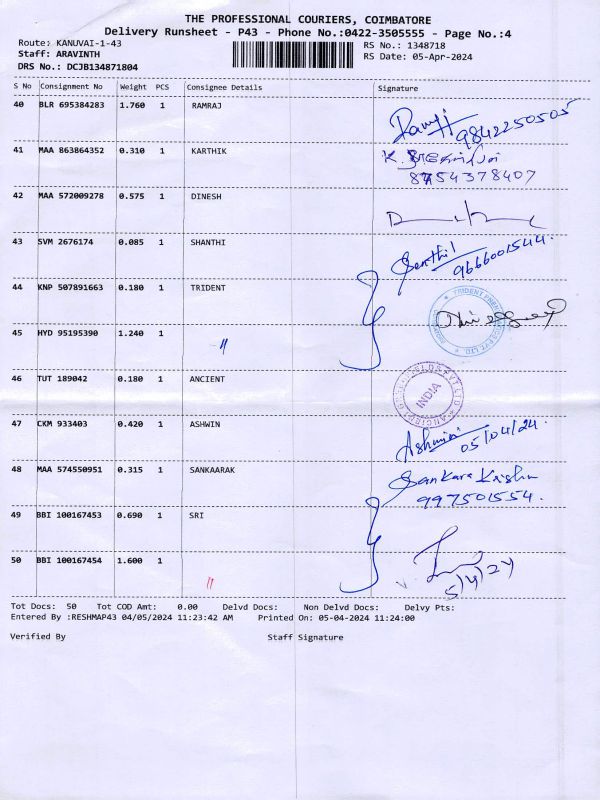 THE PROFESSIONAL COURIERS, COIMBATORE
Delivery Runsheet - P43 - Phone No.:0422-3505555 - Page No.:4
Route: KANUVAI-1-43
RS No.: 1348718
Staff: ARAVINTH
RS Date: 05-Apr-2024
DRS No.: DCJB134871804
S No Consignment No Weight PCS Consignee Details Signature
40 BLR 695384283 1.760 1 RAMRAJ
9842250505
41 MAA 863864352 0.310 1 KARTHIK
8754378407
42 MAA 572009278 0.575 1 DINESH
43 SVM 2676174 0.085 1 SHANTHI
Senthil
9666001544.
44 KNP 507891663 0.180 1 TRIDENT
TRIDENT
PVT. LTD.
45 HYD 95195390 1.240 1 "
46 TUT 189042 0.180 1 ANCIENT
INDIA
47 CKM 933403 0.420 1 ASHWIN
Ashwini 05/04/24.
48 MAA 574550951 0.315 1 SANKAARAK
Sankara Krishna
997501554.
49 BBI 100167453 0.690 1 SRI
50 BBI 100167454 1.600 1 "
5/4/24
Tot Docs: 50 Tot COD Amt: 0.00 Delvd Docs: Non Delvd Docs: Delvy Pts:
Entered By :RESHMAP43 04/05/2024 11:23:42 AM Printed On: 05-04-2024 11:24:00
Verified By Staff Signature